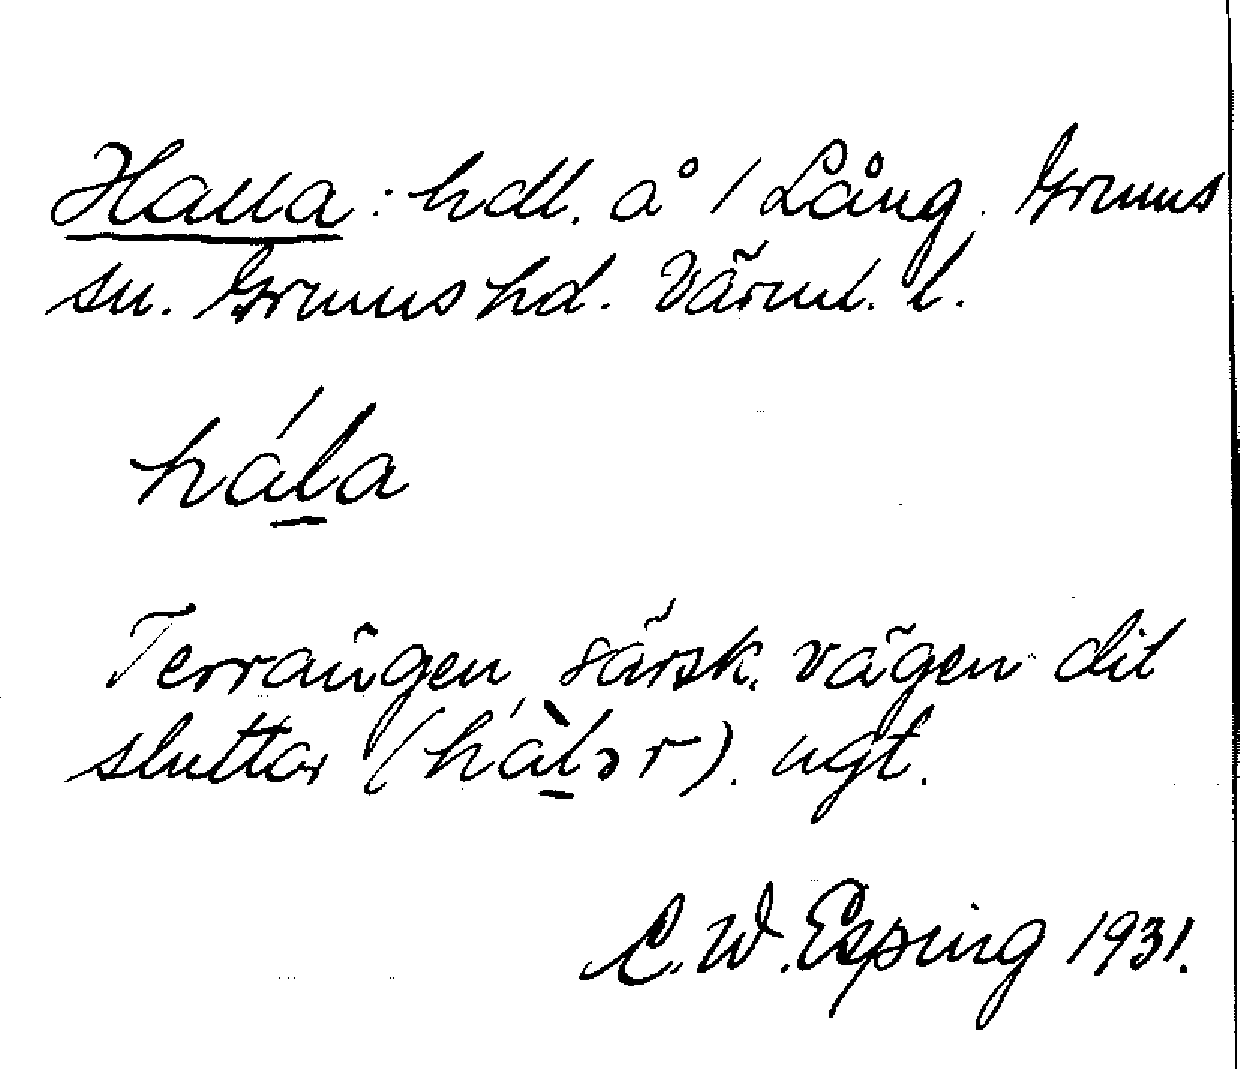 Halla: hdl. å 1 Lång. Grums
sn. Grums hd. Värml. l.
hála
Terrängen, särsk. vägen dit
sluttar (hálər). ugt.
C. W. Esping 1931.